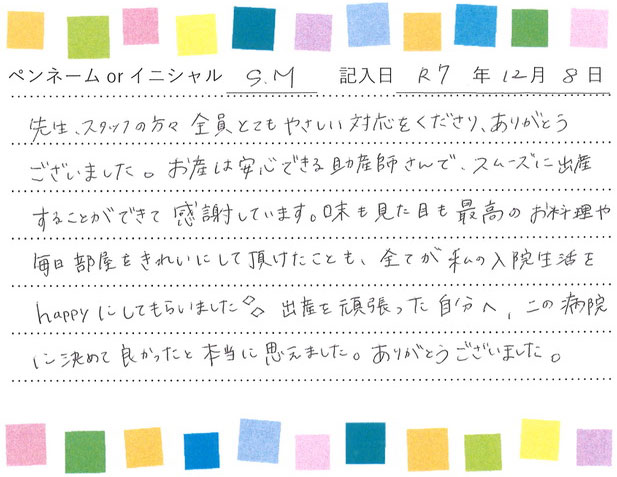 ペンネーム or イニシャル S.M 記入日 R7 年 12月 8 日
先生、スタッフの方々 全員とてもやさしい対応をくださり、ありがとう
ございました。お産は安心できる助産師さんで、スムーズに出産
することができて感謝しています。味も見た目も最高のお料理や
毎日部屋をきれいにして頂けたことも、全てが私の入院生活を
happyにしてもらいました◇◇ 出産を頑張った自分へ、この病院
に決めて良かったと本当に思えました。ありがとうございました。